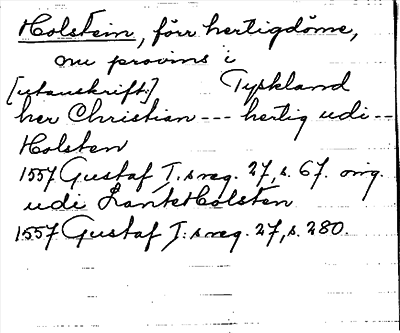 Holstein, förr hertigdöme,
nu provins i
[utanskrift:] Tyskland
her Christian --- hertig udi --
Holsten
1557 Gustaf I:s reg. 27, s. 67. orig.
udi Lantt Holsten
1557 Gustaf I:s reg. 27, s. 280.